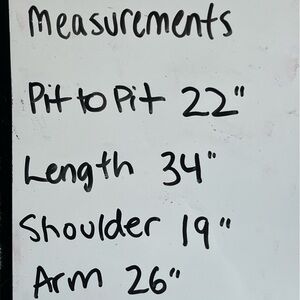 Measurements
Pit to Pit 22"
Length 34"
Shoulder 19"
Arm 26"